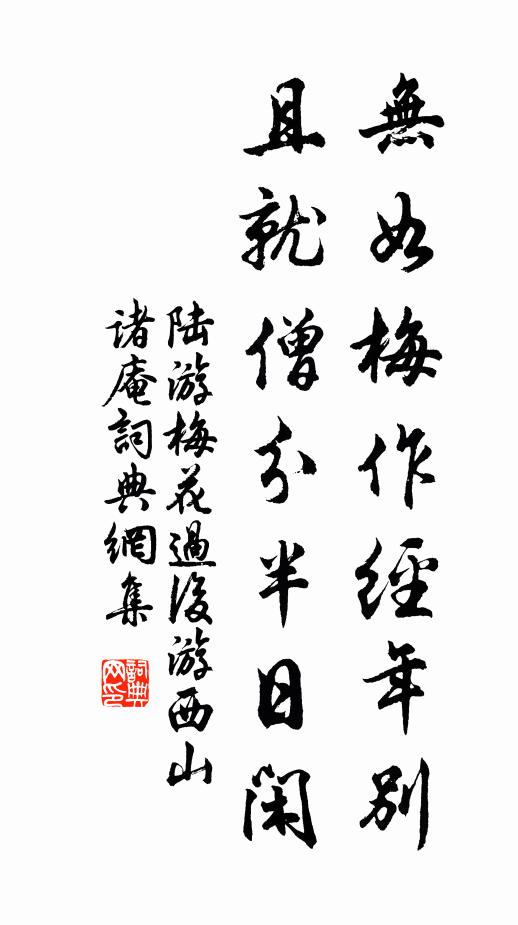 無如梅作經年別
且就僧分半日閑
陆游梅花過後游西山
諸庵詞典網集
詞典网印